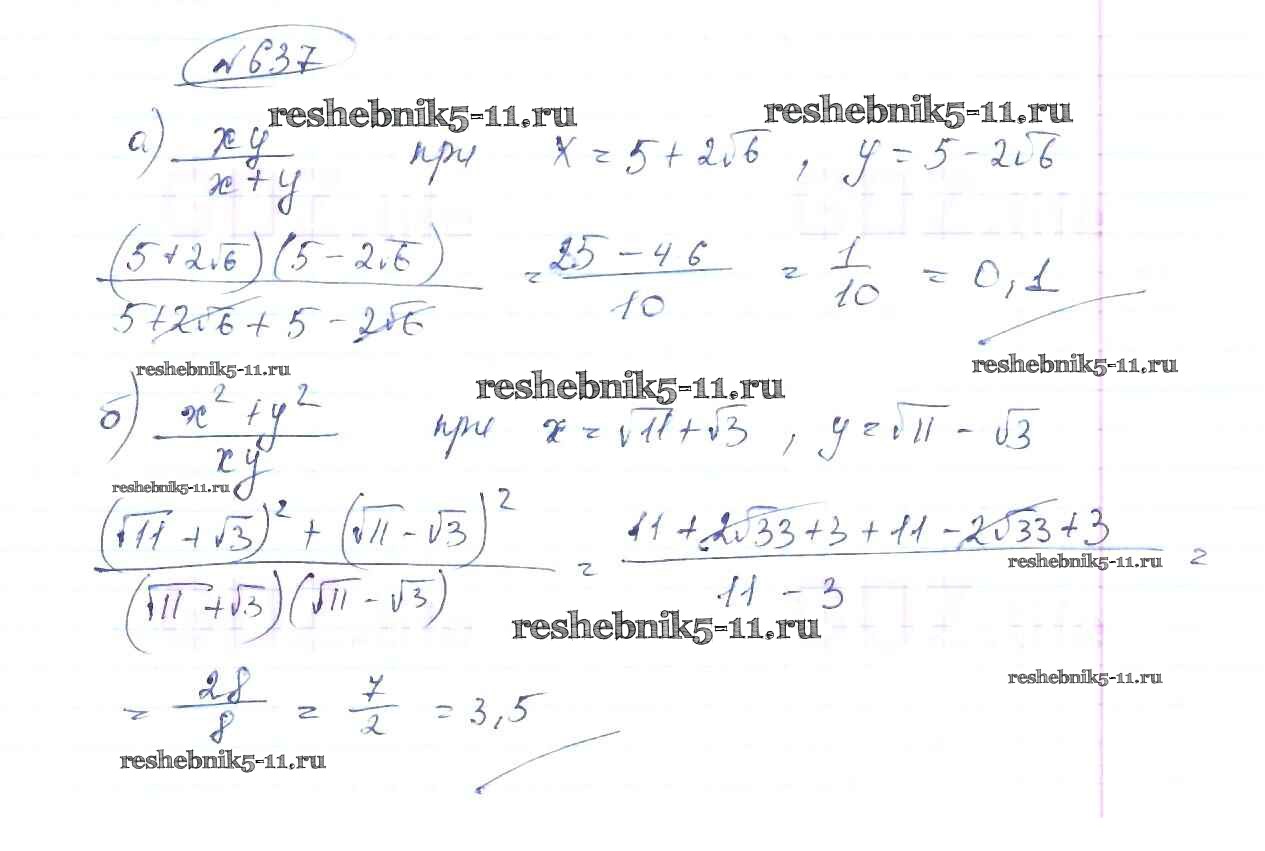 №637
reshebnik5-11.ru reshebnik5-11.ru
а) xy / (x + y) при x = 5 + 2√6 , y = 5 - 2√6
(5 + 2√6)(5 - 2√6) / (5 + 2√6 + 5 - 2√6) = (25 - 4·6) / 10 = 1/10 = 0,1
reshebnik5-11.ru reshebnik5-11.ru
reshebnik5-11.ru
б) (x² + y²) / xy при x = √11 + √3 , y = √11 - √3
reshebnik5-11.ru
((√11 + √3)² + (√11 - √3)²) / ((√11 + √3)(√11 - √3)) = (11 + 2√33 + 3 + 11 - 2√33 + 3) / (11 - 3) =
reshebnik5-11.ru
reshebnik5-11.ru
reshebnik5-11.ru
= 28/8 = 7/2 = 3,5
reshebnik5-11.ru